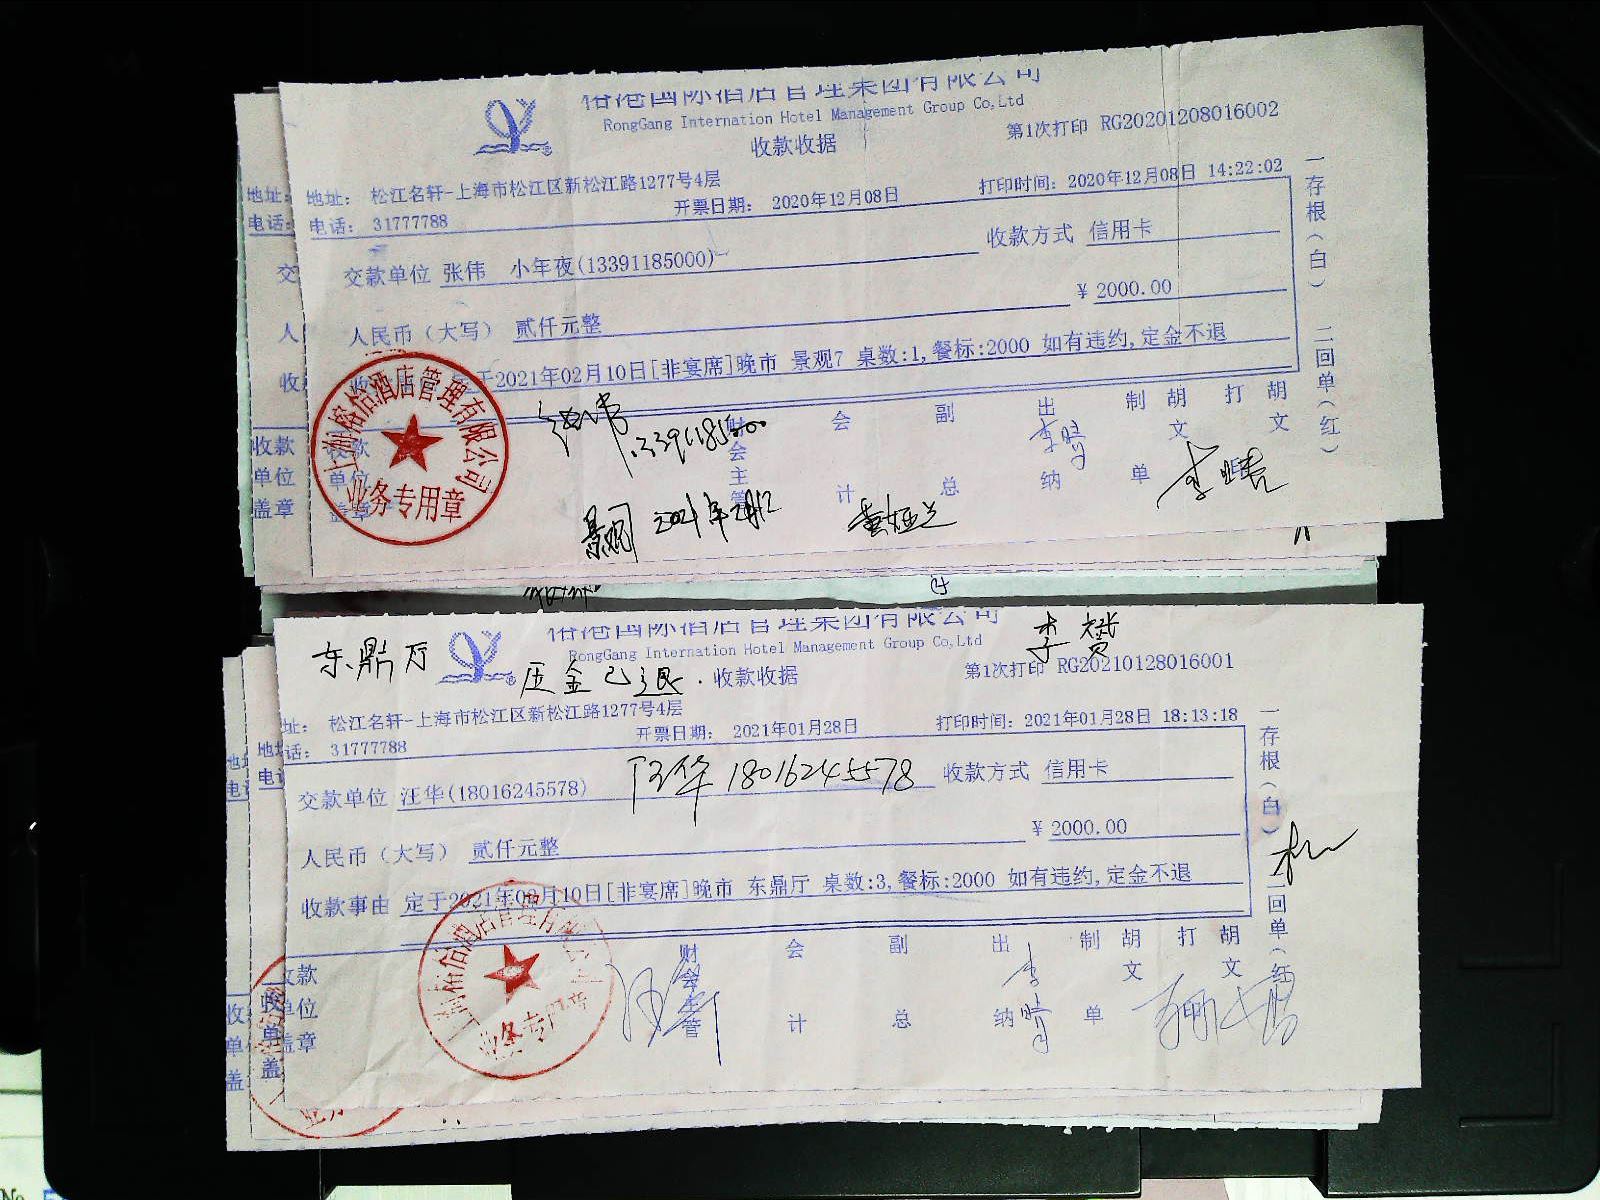 裕港国际酒店管理集团有限公司
RongGang Internation Hotel Management Group Co,Ltd
收款收据
第1次打印 RG20201208016002
地址: 地址: 松江名轩-上海市松江区新松江路1277号4层
电话: 电话: 31777788
开票日期: 2020年12月08日
打印时间: 2020年12月08日 14:22:02
交 交款单位 张伟 小年夜(13391185000)
收款方式 信用卡
¥ 2000.00
人 人民币(大写) 贰仟元整
收 于2021年02月10日[非宴席]晚市 景观7 桌数:1,餐标:2000 如有违约,定金不退
一存根(白) 二回单(红)
收款单位盖章
上海裕怡酒店管理有限公司
业务专用章
张伟
13391185000
财会主管 会计 副总 出纳 李晴 制单 胡文 打 胡文
李晴
景观 2021年2月12 黄娅兰
东鼎厅
压金已退.
李赟
裕港国际酒店管理集团有限公司
RongGang Internation Hotel Management Group Co,Ltd
收款收据
第1次打印 RG20210128016001
址: 松江名轩-上海市松江区新松江路1277号4层
话: 31777788
开票日期: 2021年01月28日
打印时间: 2021年01月28日 18:13:18
交款单位 汪华(18016245578)
汪华 18016245578
收款方式 信用卡
¥ 2000.00
人民币(大写) 贰仟元整
收款事由 定于2021年02月10日[非宴席]晚市 东鼎厅 桌数:3,餐标:2000 如有违约,定金不退
一存根(白) 二回单(红)
收款单位盖章
业务专用章
财会主管 会计 副总 出纳 李晴 制单 胡文 打 胡文
No